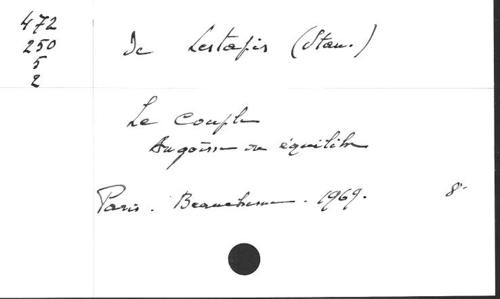 472
250
5
2
De Lestapis (Stan.)
Le couple
Angoisse ou équilibre
Paris. Beauchesne. 1969. 8°